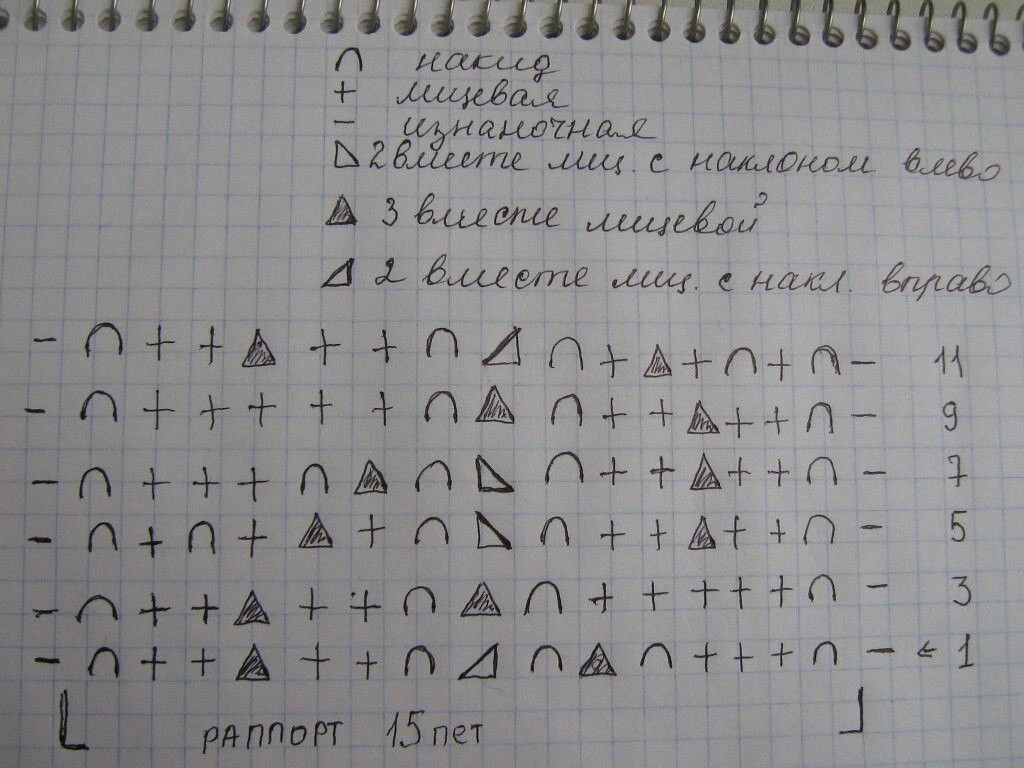 ∩ накид
+ лицевая
− изнаночная
◺ 2 вместе лиц. с наклоном влево
▲ 3 вместе лицевой
◿ 2 вместе лиц. с накл. вправо
− ∩ + + ▲ + + ∩ ◿ ∩ + ▲ + ∩ + ∩ − 11
− ∩ + + + + + ∩ ▲ ∩ + + ▲ + + ∩ − 9
− ∩ + + + ∩ ▲ ∩ ◺ ∩ + + ▲ + + ∩ − 7
− ∩ + ∩ + ▲ + ∩ ◺ ∩ + + ▲ + + ∩ − 5
− ∩ + + ▲ + + ∩ ▲ ∩ + + + + + ∩ − 3
− ∩ + + ▲ + + ∩ ◿ ∩ ▲ ∩ + + + ∩ − ← 1
раппорт 15 пет